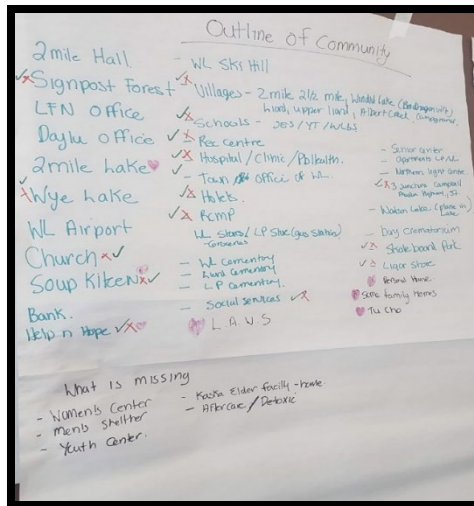 Outline of Community
2mile Hall
Signpost Forest
LFN Office
Daylu Office
2mile Lake
Wye Lake
WL Airport
Church
Soup Kitcen
Bank.
Help n Hope
- WL Ski Hill
Villages - 2mile, 2 1/2 mile,
Liard, Upper Liard, Albert Creek,
Schools - JES/YT/WLSS
Rec Centre
Hospital/Clinic/
- Town Office of WL
Hotels
RCMP
WL Stores/LP Store (gas station)
- WL Cementery
- Liard Cementery
- LP Cementery
- Social Services
L.A.W.S
- Senior center
- Apartments
- Northern light Centre
Junction Campbell
- Watson Lake
- Crematorium
Skateboard Park
Liqor Store
Some family Homes
Tu Cho
What is missing
- Women's Center
- men's Shelther
- Youth Center.
- Kaska Elder facilly - home
- Aftercare/Detoxic